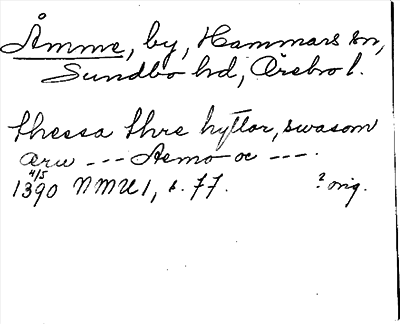 Åmme, by, Hammars sn,
Sundbo hd, Örebro l.
thessa thre hyttor, swasom
æru --- Aemo oc ---.
4/5
1390 NMU 1, s. 77. ? orig.